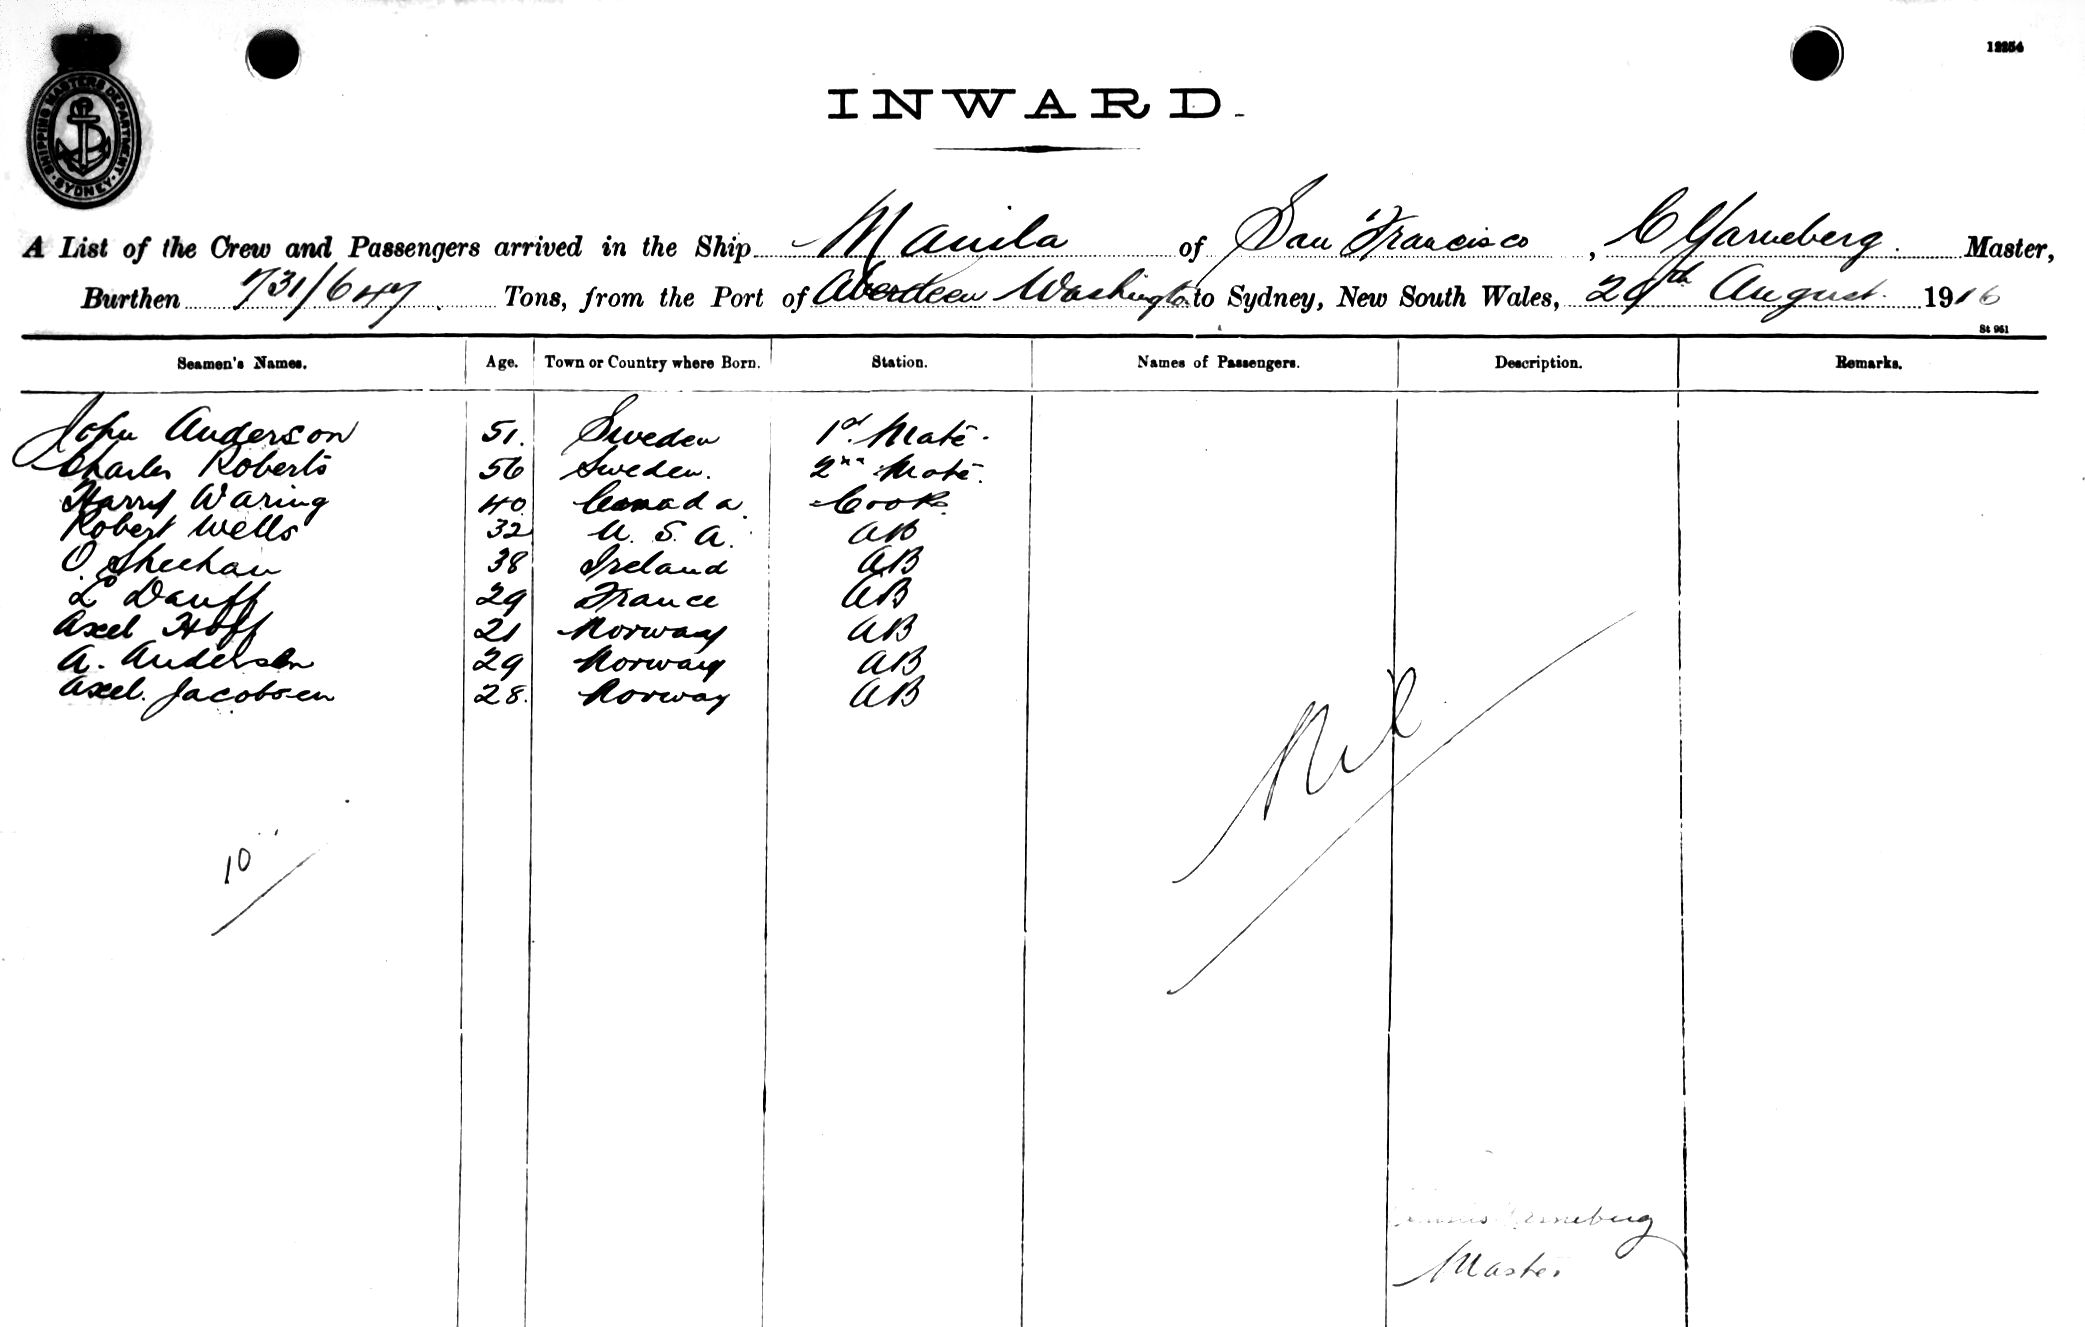 SHIPPING MASTERS DEPARTMENT
SYDNEY
12254
INWARD.
A List of the Crew and Passengers arrived in the Ship Manila of San Francisco, C Yarneberg. Master,
Burthen 731/647. Tons, from the Port of Aberdeen Washington to Sydney, New South Wales, 29th August 1916
St 951
Seamen's Names. Age. Town or Country where Born. Station. Names of Passengers. Description. Remarks.
John Anderson 51. Sweden 1st. Mate.
Charles Roberts 56 Sweden. 2nd Mate.
Harry Waring 40. Canada. Cook.
Robert Wells 32 U. S. A. AB
O. Sheehan 38 Ireland AB
L Dauff 29 France AB
Axel Hoff 21 Norway AB
A. Anderson 29 Norway AB
Axel. Jacobsen 28. Norway AB
Nil
10
Master